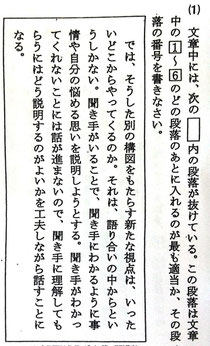 (1) 文章中には、次の□内の段落が抜けている。この段落は文章
中の1～6のどの段落のあとに入れるのが最も適当か、その段
落の番号を書きなさい。
では、そうした別の構図をもたらす新たな視点は、いった
いどこからやってくるのか。それは、語り合いの中からとい
うしかない。聞き手がいることで、聞き手にわかるように事
情や自分の悩める思いを説明しようとする。聞き手がわかっ
てくれないことには話が進まないので、聞き手に理解しても
らうにはどう説明するのがよいかを工夫しながら話すことに
なる。